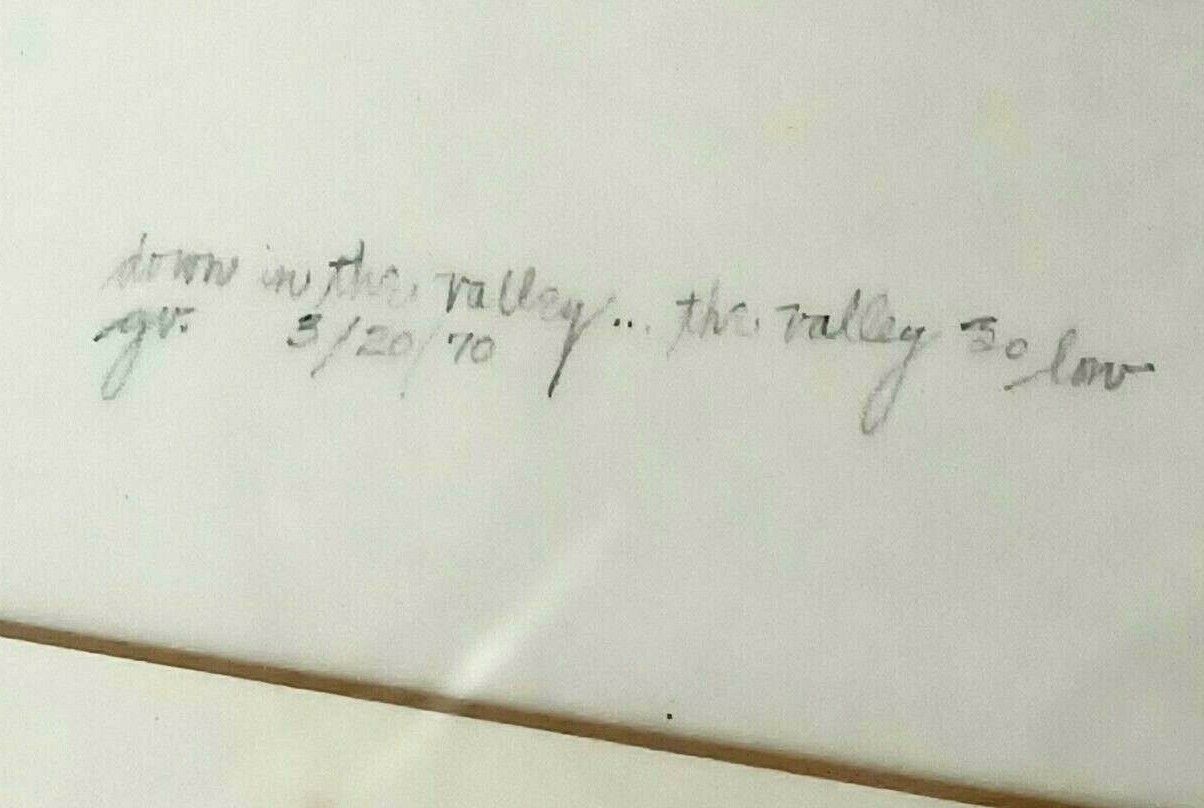 down in the valley... the valley so low
gv. 3/20/70